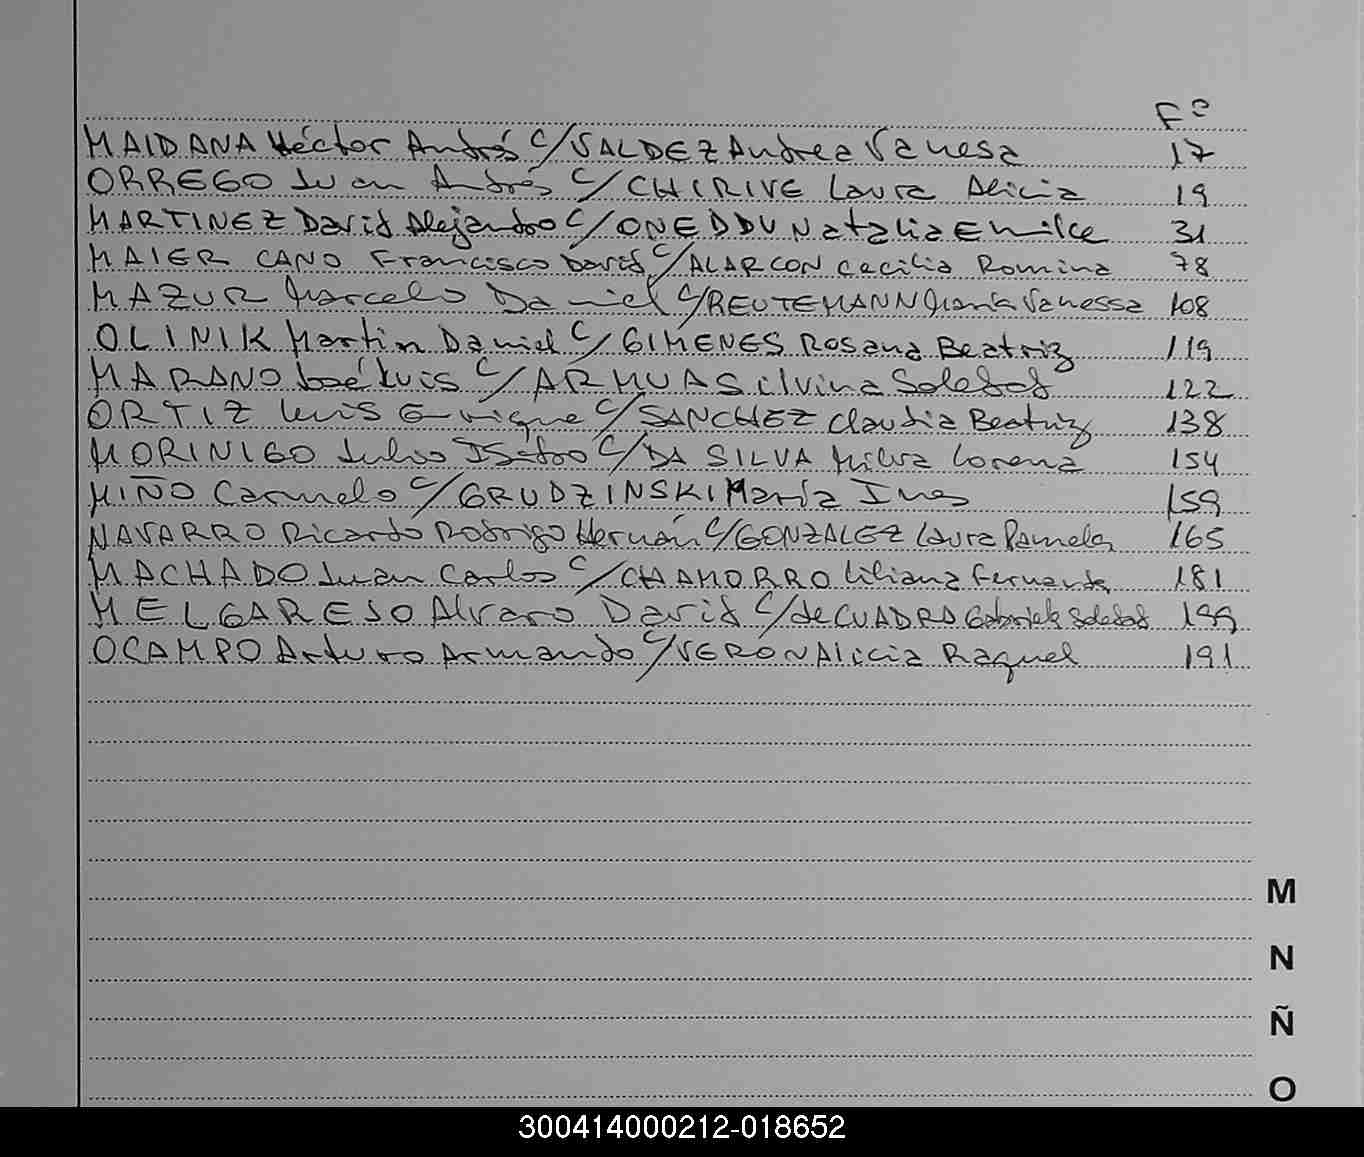 Fº
MAIDANA Héctor Andrés c/ VALDEZ Andrea Vanesa 17
ORREGO Juan Andrés c/ CHIRIVE Laura Alicia 19
MARTINEZ David Alejandro c/ ONEDDU Natalia Emilce 31
MAIER CANO Francisco David c/ ALARCON Cecilia Romina 78
MAZUR Marcelo Daniel c/ REUTEMANN María Vanessa 108
OLINIK Martin Daniel c/ GIMENES Rosana Beatriz 119
MARANO José Luis c/ ARMUA Silvina Soledad 122
ORTIZ Luis Enrique c/ SANCHEZ Claudia Beatriz 138
MORINIGO Julio Isidro c/ DA SILVA Milva Lorena 154
MIÑO Carmelo c/ GRUDZINSKI María Ines 159
NAVARRO Ricardo Rodrigo Hernán c/ GONZALEZ Laura Pamela 165
MACHADO Juan Carlos c/ CHAMORRO Liliana Fernanda 181
MELGAREJO Alvaro David c/ de CUADRA Gabriela Soledad 199
OCAMPO Arturo Armando c/ VERON Alicia Raquel 191
M
N
Ñ
O
300414000212-018652